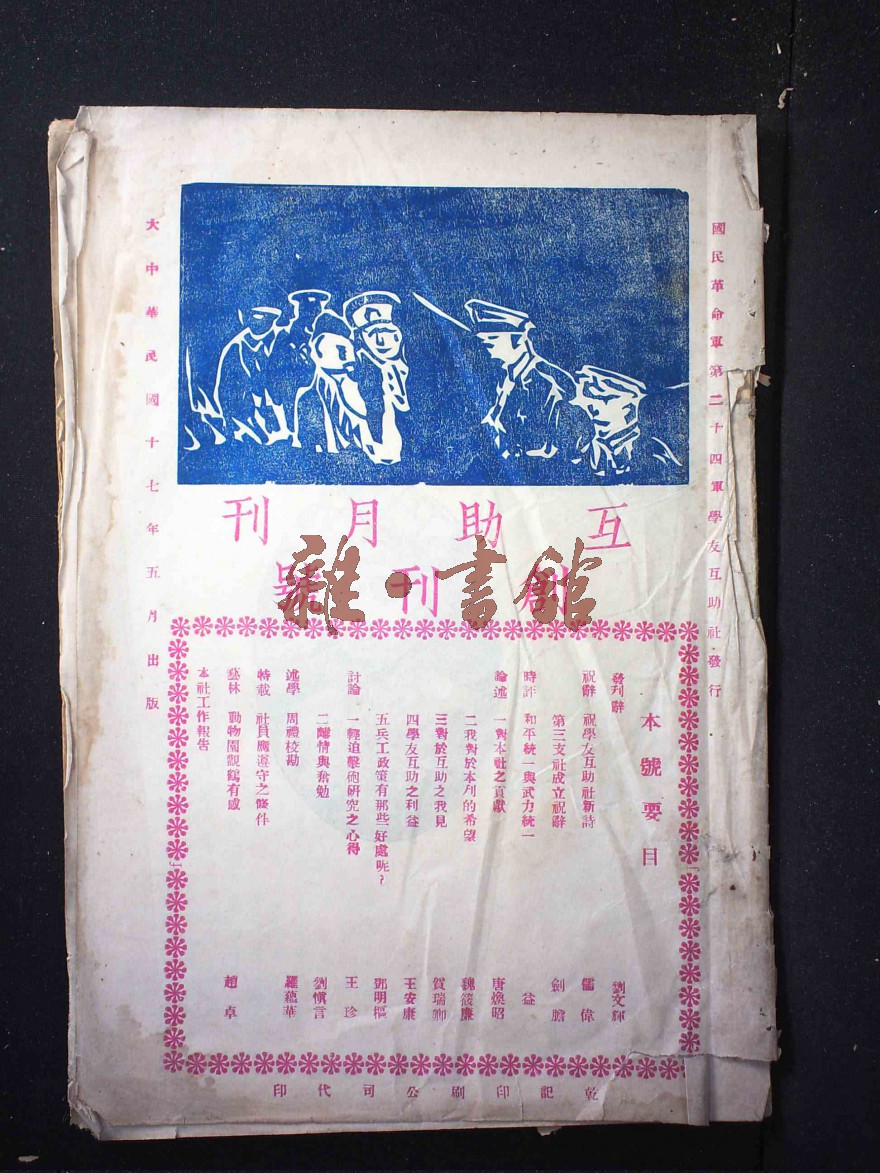 國民革命軍第二十四軍學友互助社發行
互助月刊
創刊號
雜·書館
大中華民國十七年五月出版
本號要目
發刊辭 劉文輝
祝辭 祝學友互助社新詩 儒偉
第三支社成立祝辭 劍膽
時評 和平統一與武力統一 益
論述 一對本社之貢獻 唐煥昭
二我對於本刋的希望 魏篏廉
三對於互助之我見 賀瑞卿
四學友互助之利益 王安康
五兵工政策有那些好處呢？ 鄧明樞
討論 一輕迫擊砲研究之心得 王珍
二離情與奮勉 劉愼言
述學 周禮校勘 羅蘊華
特載 社員應遵守之條件
藝林 動物園觀鶴有感 趙卓
本社工作報告
乾記印刷公司代印